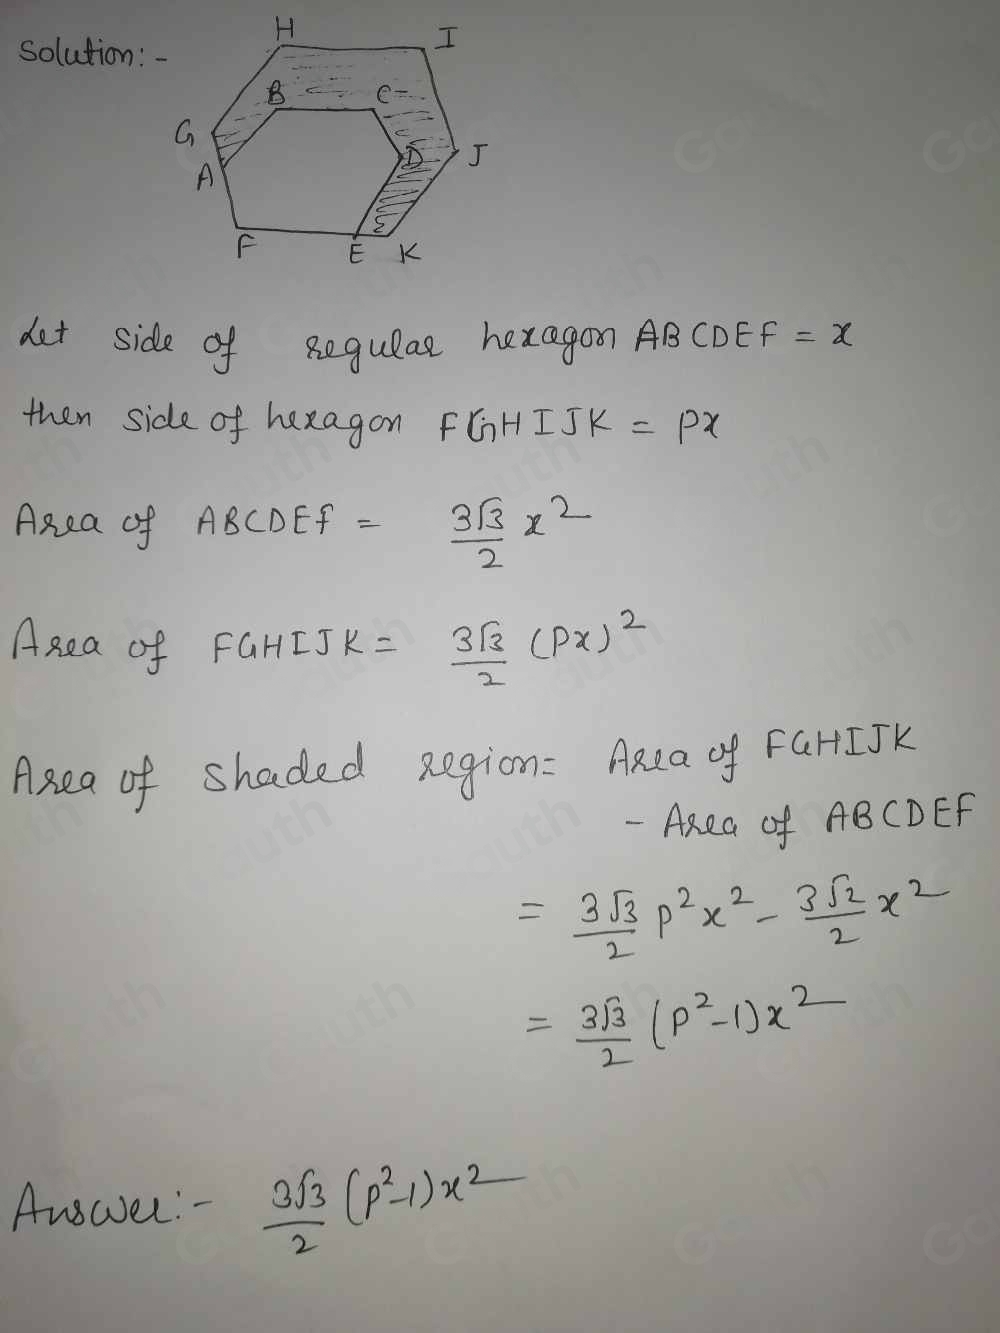 Solution:-
H
I
B
C
G
A
D
J
F
E
K
Let side of regular hexagon ABCDEF = x
then side of hexagon FGHIJK = px
Area of ABCDEF = 3√3/2 x²
Area of FGHIJK = 3√3/2 (px)²
Area of shaded region = Area of FGHIJK
- Area of ABCDEF
= 3√3/2 p²x² - 3√2/2 x²
= 3√3/2 (p²-1)x²
Answer:- 3√3/2 (p²-1)x²